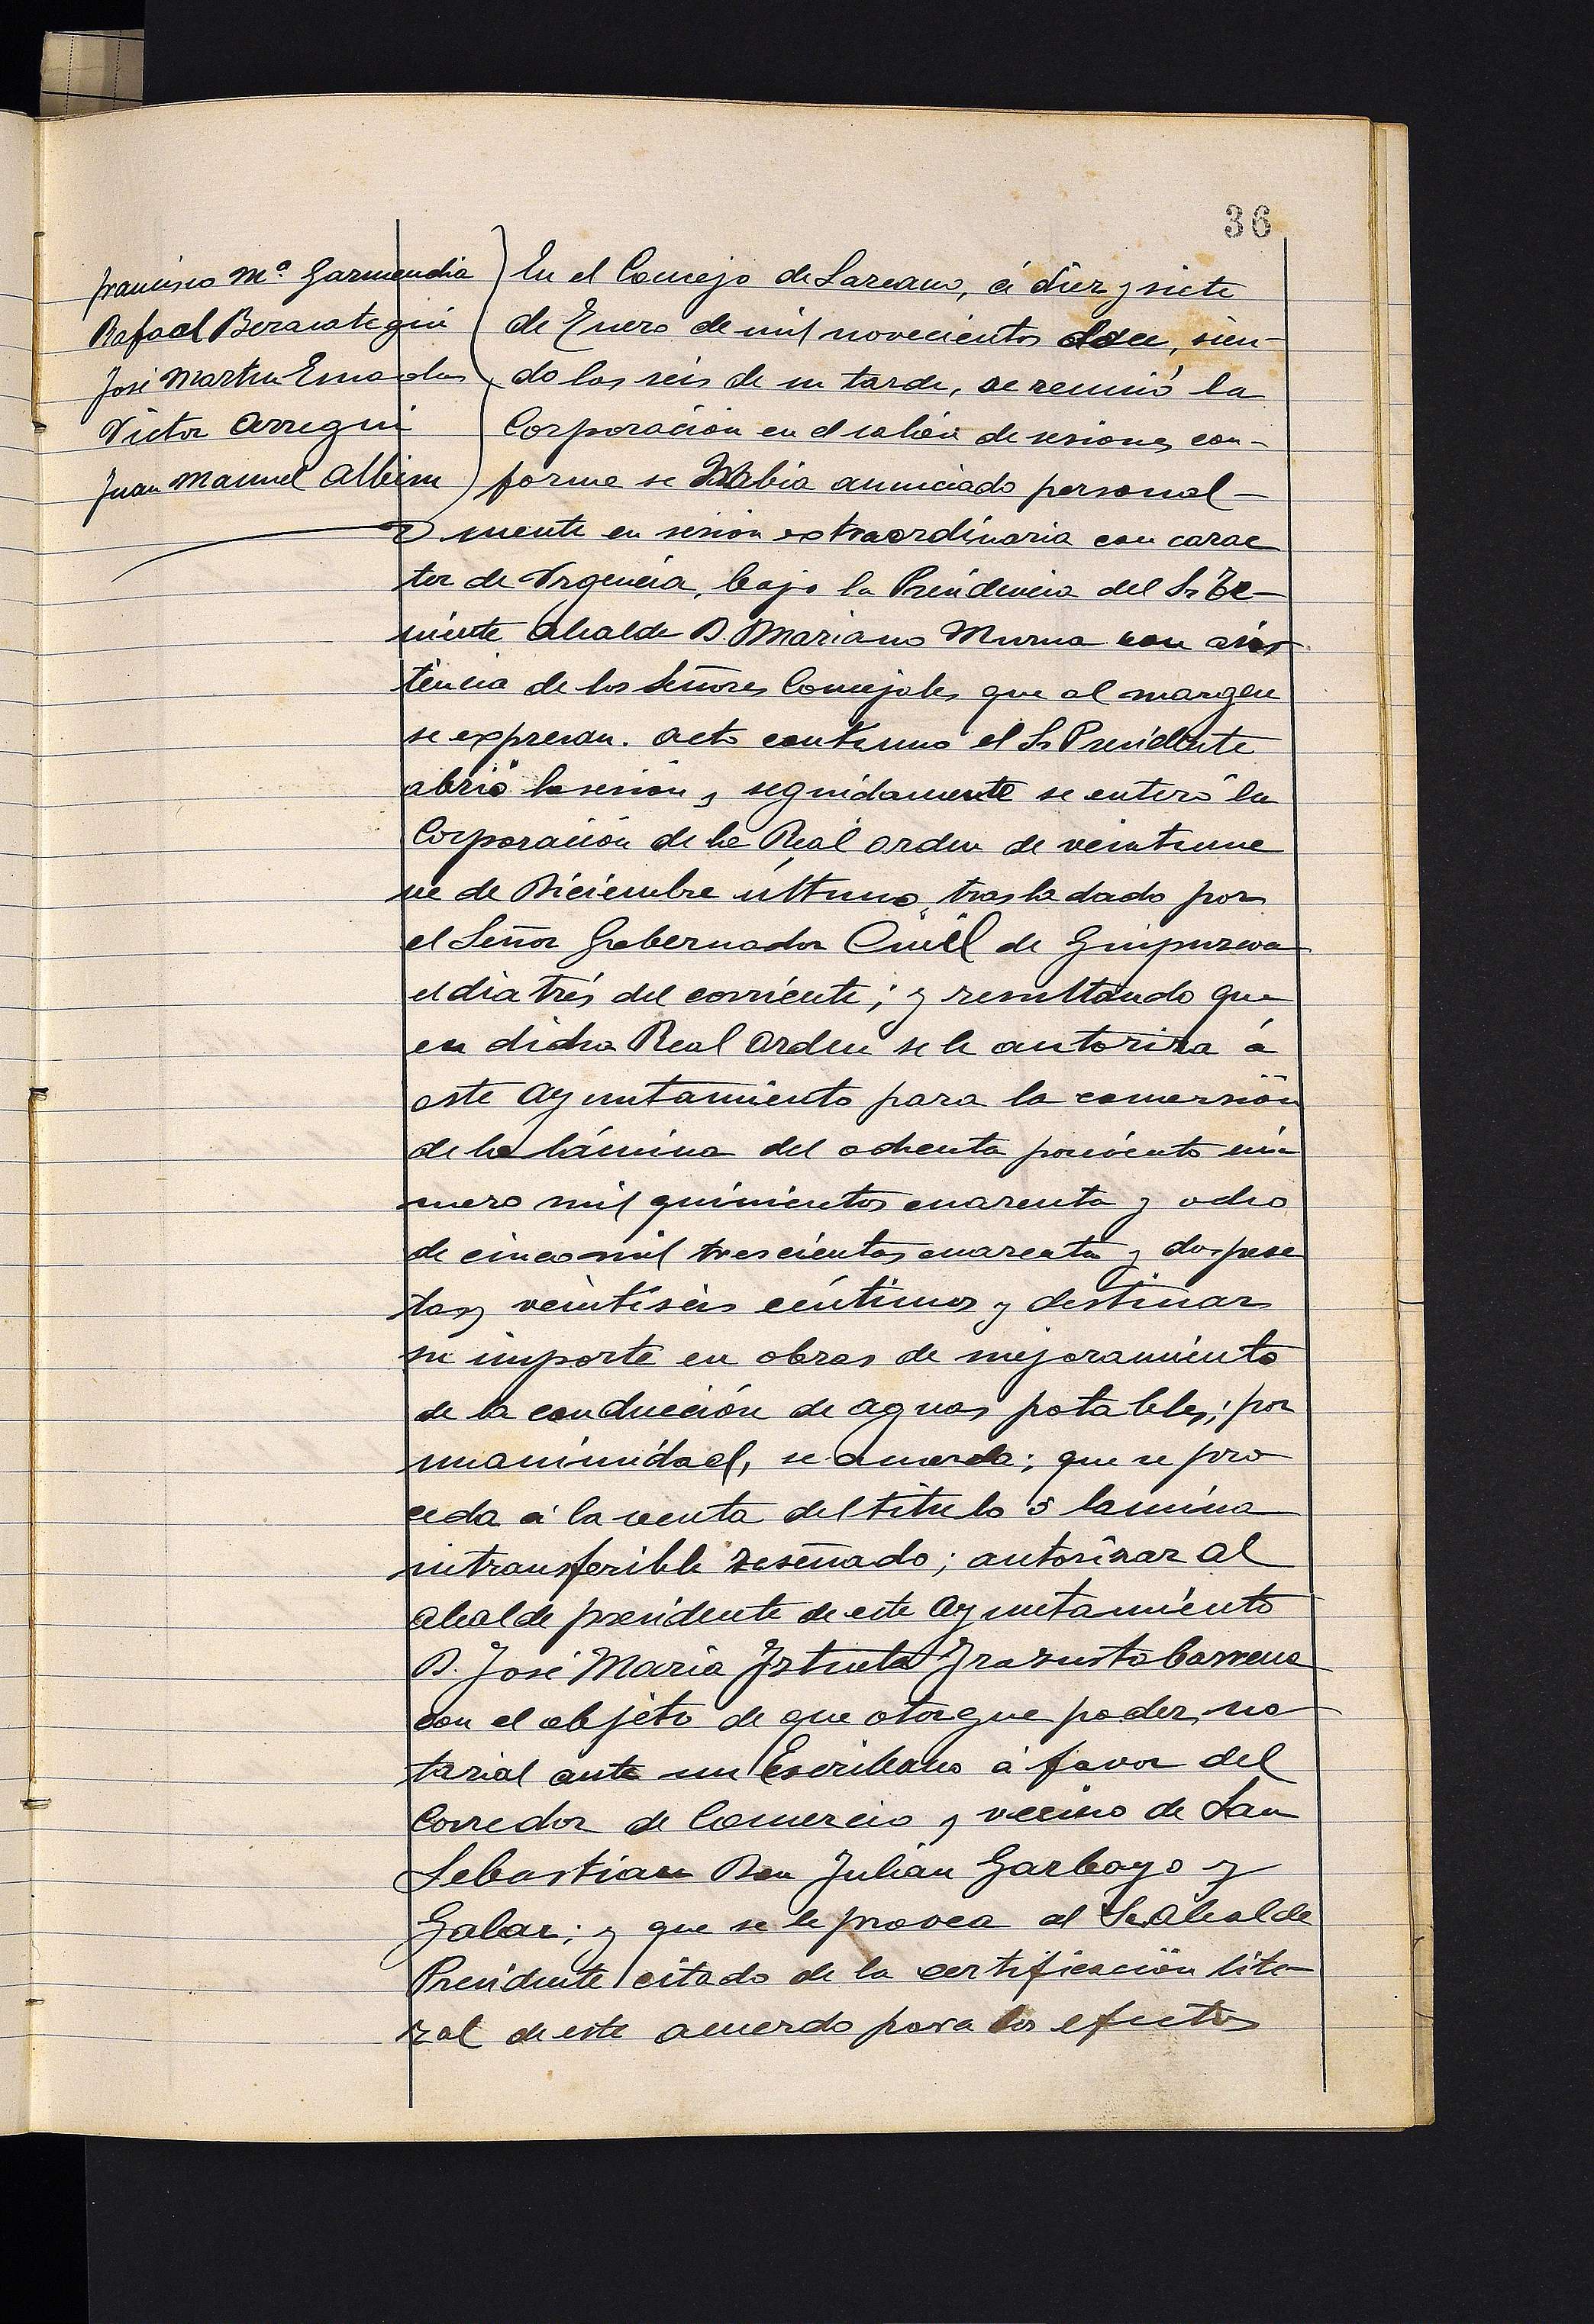 36
Francisco Mª. Garmendia
Rafael Beracategui
José Martin
Victor Arregui
Juan Manuel Albisu
En el Concejo de Lazcano, á diez y siete
de Enero de mil novecientos doce, sien-
do las seis de su tarde, se reunió la
Corporación en el salón de sesiones con-
forme se Habia anunciado personal-
mente en sesión extraordinaria con carac
ter de Urgencia, bajo la Presidencia del Sr Te-
niente Alcalde D. Mariano Murua con asis
tencia de los Señores Concejales que al margen
se expresan. Acto continuo el Sr Presidente
abrió la sesión y seguidamente se enteró la
Corporación de la Real Orden de veintinue
ve de Diciembre último, trasladado por
el Señor Gobernador Civil de Guipuzcoa
el dia trés del corriente; y resultando que
en dicha Real Orden se le autoriza á
este Ayuntamiento para la conversión
de la lámina del ochenta porciento nú
mero mil quinientos cuarenta y ocho
de cinco mil trescientas cuarenta y dos pese
tas y veintiseis céntimos y destinar
su importe en obras de mejoramiento
de la conducción de aguas potables; por
unanimidad, se acuerda; que se pro
ceda á la venta del titulo ó lamina
intransferible reseñado; autorizar al
Alcalde presidente de este Ayuntamiento
D. José Maria Iztueta Irazusta Barrena
con el objeto de que otorgue poder no
tarial ante un Escribano á favor del
Corredor de Comercio y vecino de San
Sebastian Don Julián Garbayo y
Galar; y que se le provea al Sr Alcalde
Presidente citado de la certificación lite-
ral de este acuerdo para los efectos